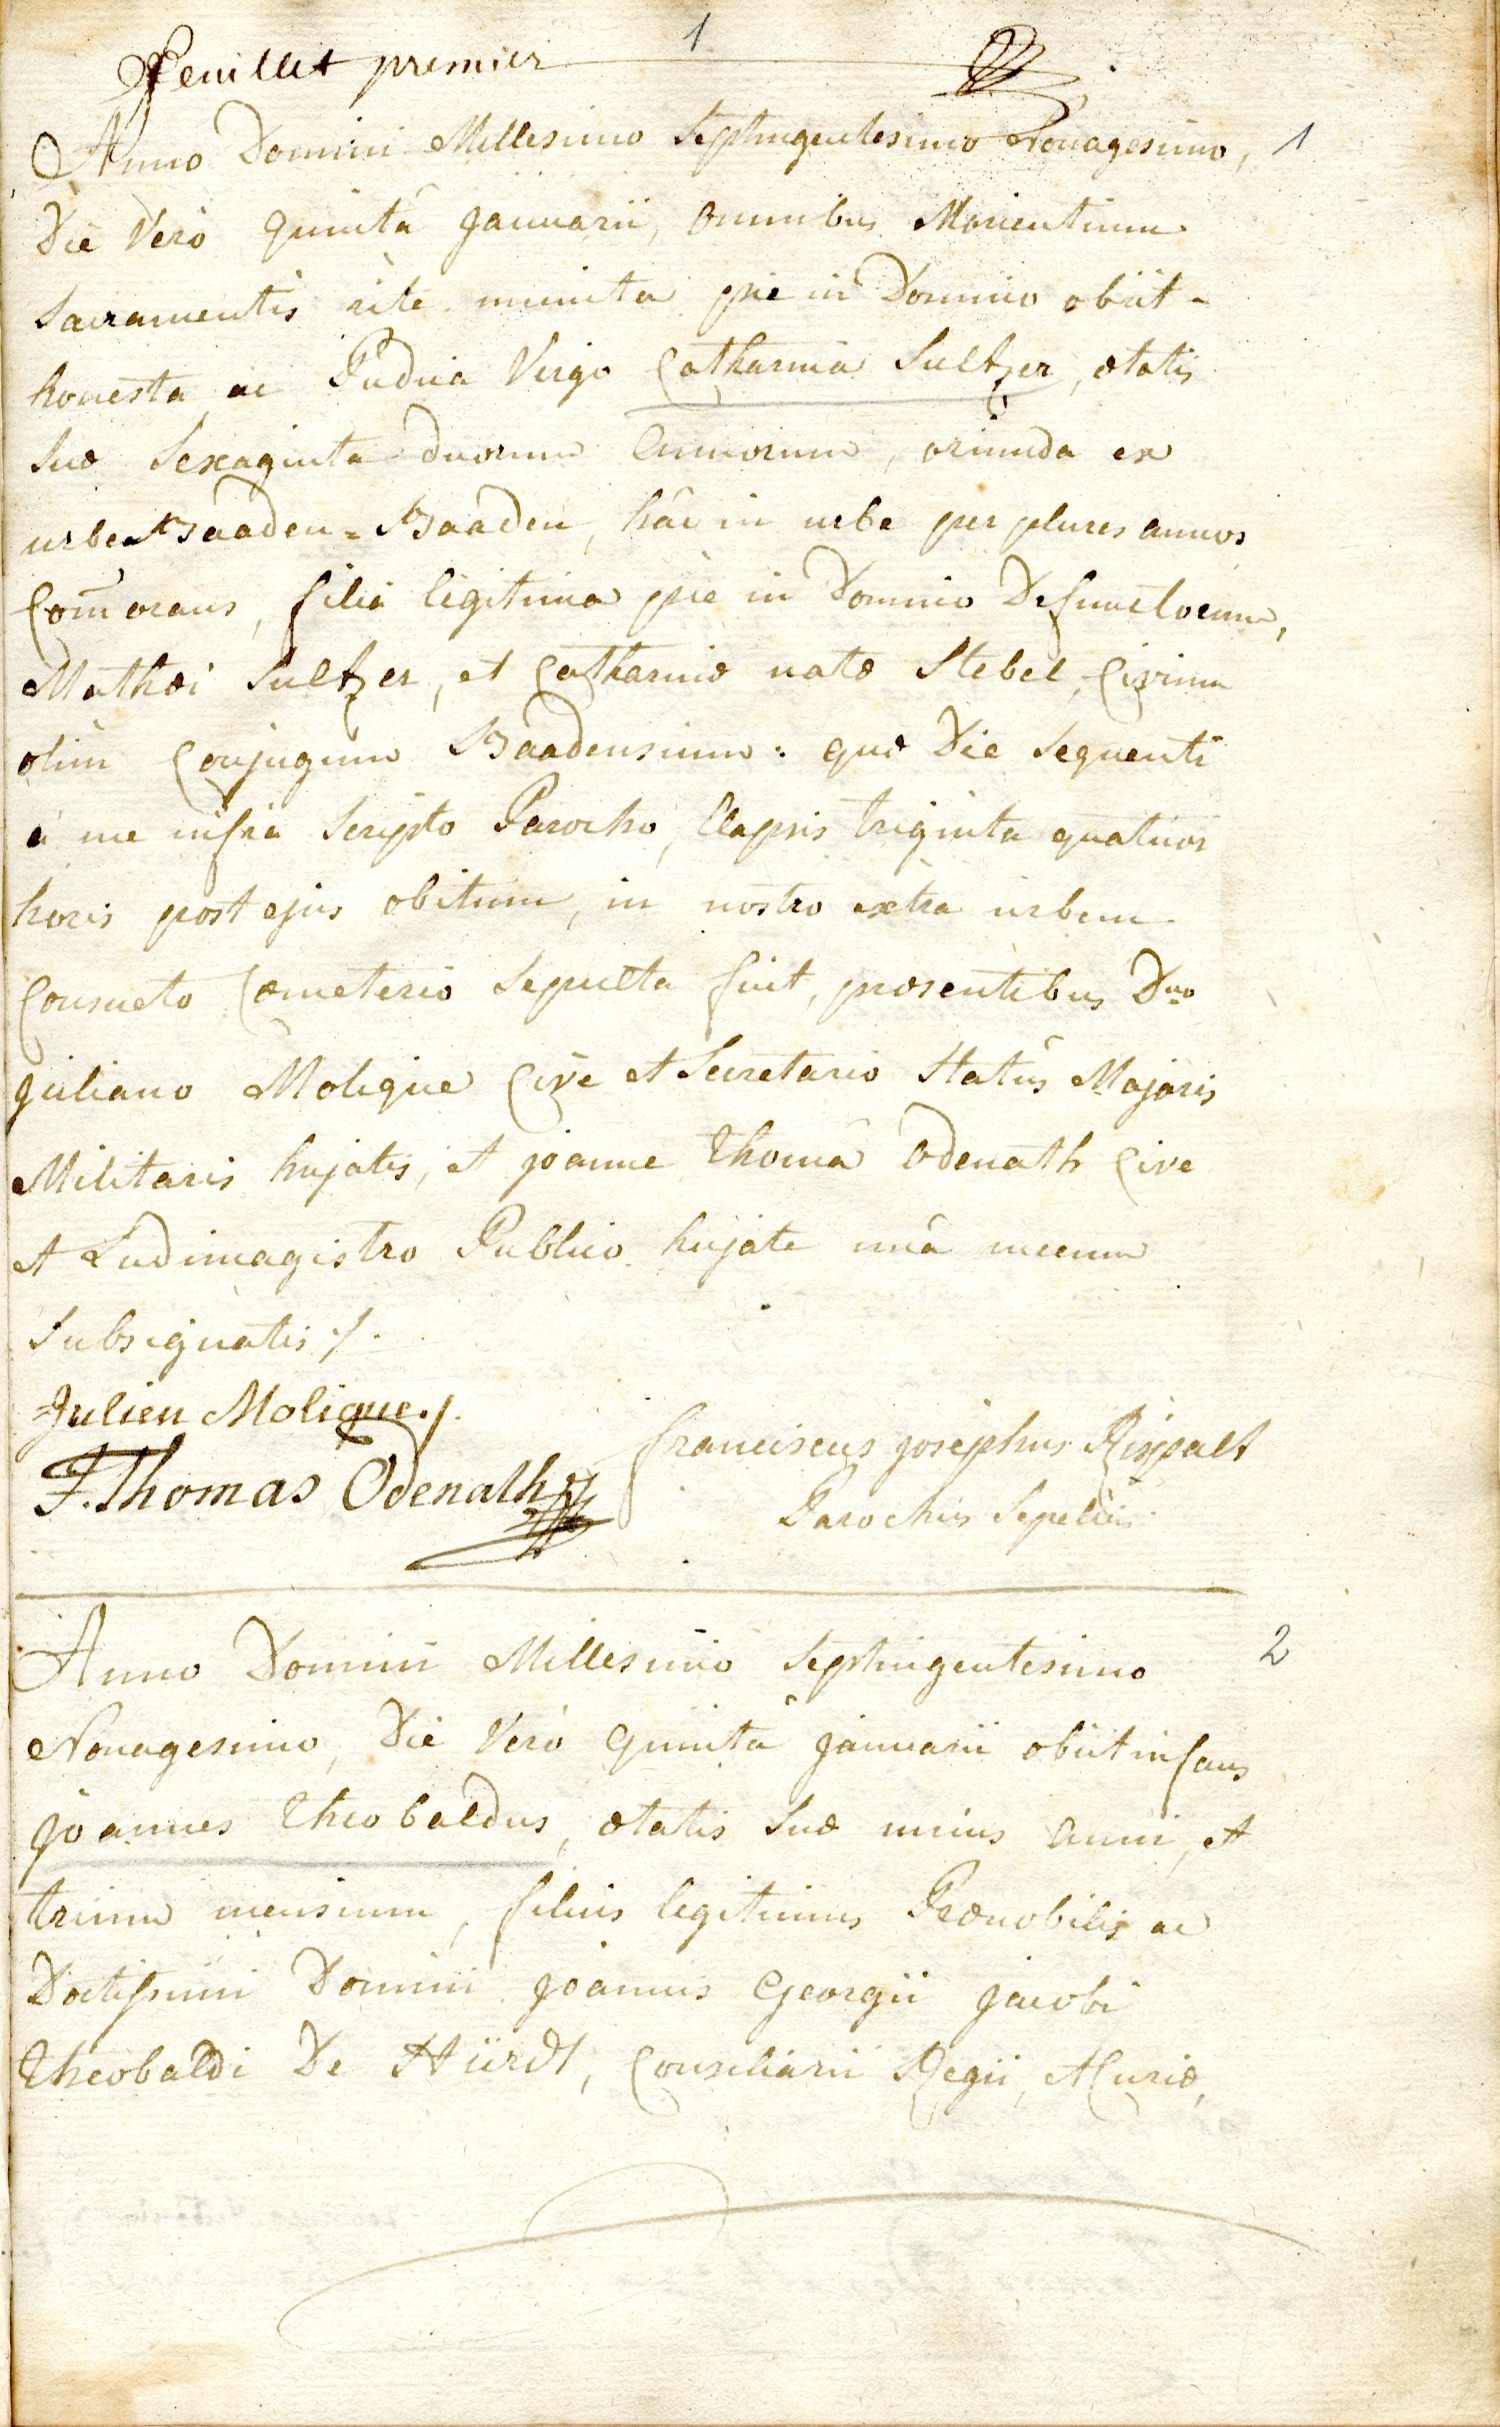 1
Feuillet premier
Anno Domini Millesimo Septingentesimo Nonagesimo, 1
Die Verò quintâ Januarii, omnibus Morientium
Sacramentis ritè munita piè in Domino obiit
honesta ac Pudica Virgo Catharina Sultzer, ætatis
Suæ Sexaginta duorum Annorum, oriunda ex
urbe Baaden=Baaden, hâc in urbe per plures annos
Com̄orans, filia legitima piè in Domino Defunctorum,
Mathæi Sultzer, et Catharinæ natæ Stebel, Civium
olim Conjugum Baadensium: quæ Die Sequenti
à me infrà Scripto Parocho, Elapsis triginta quatuor
horis post ejus obitum, in nostro extra urbem
Consueto Cœmeterio Sepulta fuit, præsentibus Dno
Juliano Molique Cive et Secretario Statûs Majoris
Militaris hujatis, et Joanne Thomâ Odenath Cive
et Ludimagistro Publico hujate unâ mecum
Subsignatis ./.
Julien Molique./.
Franciscus Josephus Rixpalt
F. Thomas Odenath
Parochus Sepeliens
Anno Domini Millesimo Septingentesimo 2
Nonagesimo, Die Verò Quintâ Januarii obiit infans
Joannes Theobaldus, ætatis Suæ unius Anni, et
trium mensium, filius legitimus Prænobilis ac
Doctissimi Domini Joannis Georgii Jacobi
Theobaldi De Hürdt, Consiliarii Regii, et Curiæ,